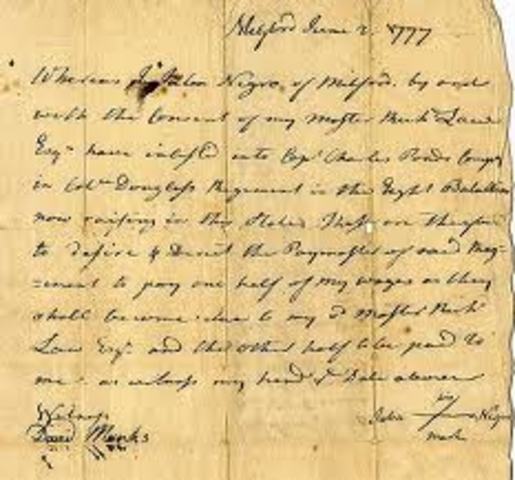 Milford June 2. 1777
Whereas I, Negro, of Milford. by and
with the Consent of my Master Law
Esqr have inlist'd into Capt Charles Ponds Compy
in Coln Douglass Regiment in the Eight Battalion
now raising in this State These are therefore
to desire & Direct the Paymaster of said Reg-
-ment to pay one half of my wages as they
shall become due to my sd Master
Law Esqr and the other half to be paid to
me. as witness my hand & Date above
Witness
David
his
Negro
mark